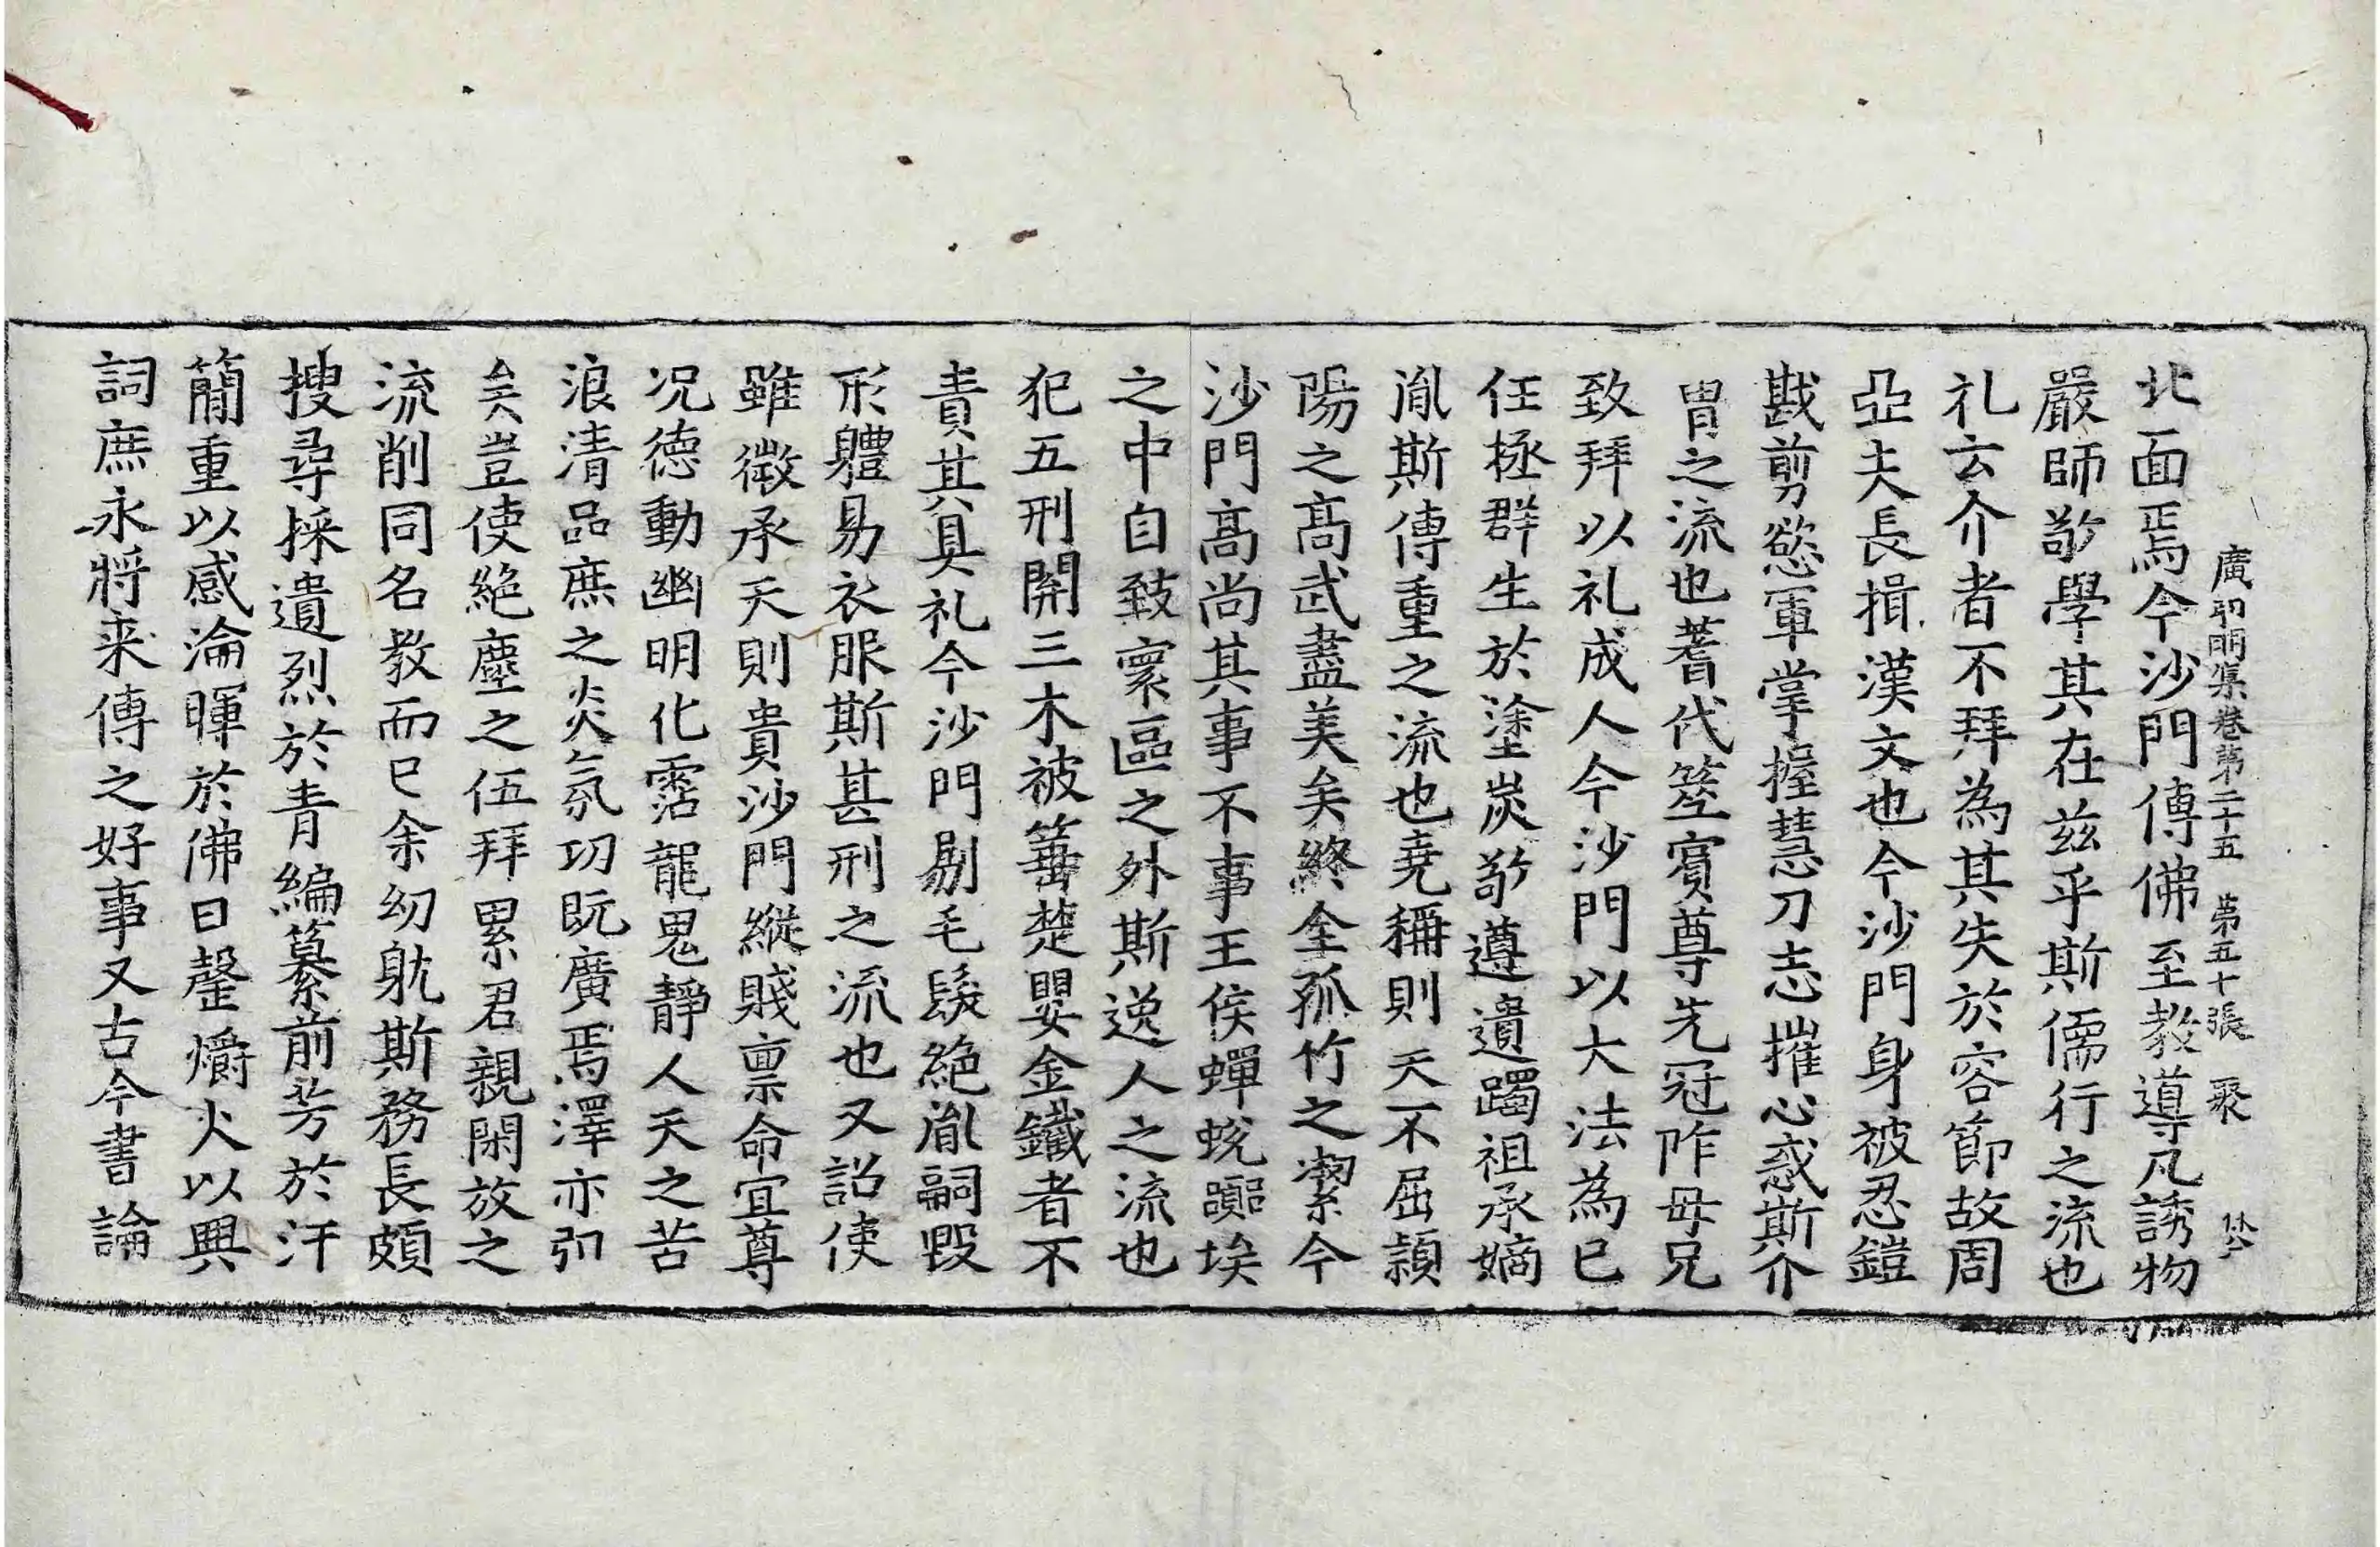 廣弘明集卷第二十五　第五十張　聚
北面焉今沙門傳佛至教導凡誘物
嚴師敬學其在茲乎斯儒行之流也
礼云介者不拜為其失於容節故周
亞夫長揖漢文也今沙門身被忍鎧
戡剪慾軍掌握慧刀志摧心惑斯介
胄之流也蓍代筮賓尊先冠阼母兄
致拜以礼成人今沙門以大法為己
任拯群生於塗炭敬遵遺躅祖承嫡
胤斯傳重之流也堯稱則天不屈頴
陽之高武盡美矣終全孤竹之潔今
沙門高尚其事不事王侯蟬蛻躧埃
之中自致寰區之外斯逸人之流也
犯五刑關三木被箠楚嬰金鐵者不
責其具礼今沙門剔毛髮絕胤嗣毀
形軆易衣服斯甚刑之流也又詔使
雖微承天則貴沙門縱賤禀命宜尊
况德動幽明化霑龍鬼靜人天之苦
浪清品庶之炎氛功既廣焉澤亦弘
矣豈使絕塵之伍拜累君親閑放之
流削同名教而已余幼躭斯務長頗
搜尋採遺烈於青編纂前芳於汗
簡重以感淪暉於佛日罄爝火以興
詞庶永將来傳之好事又古今書論